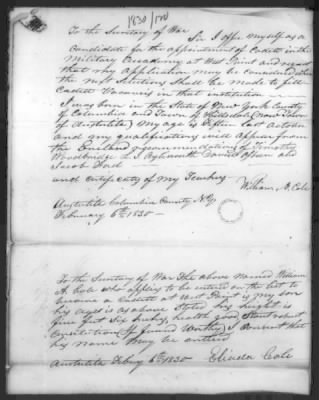 1830/170
To the Secretary of War
Sir I offer myself as a
Candidate for the appointment of Cadet in the
Military Academy at West Point and request
that my Application may be considered when
the next Selections shall be made to fill
Cadet Vacancies in that institution
I was born in the State of New York County
of Columbia and Town of Hillsdale (now Town
of Austerlitz) My age is fifteen last October
and my qualifications will appear from
the Enclosed recommendations of Timothy
Woodbridge
Jacob Ford
and Certificate of my Teachers
William A. Cole
Austerlitz Columbia County NY
February 6th 1830
To the Secretary of War The above Named William
A. Cole who applies to be entered on the list to
become a Cadett at West Point is my son
his age is as above Stated his height is
five feet Six inches, health good Stout robust
Constitution If found worthy I consent that
his name may be entered
Austerlitz Feby 6th 1830 Cole